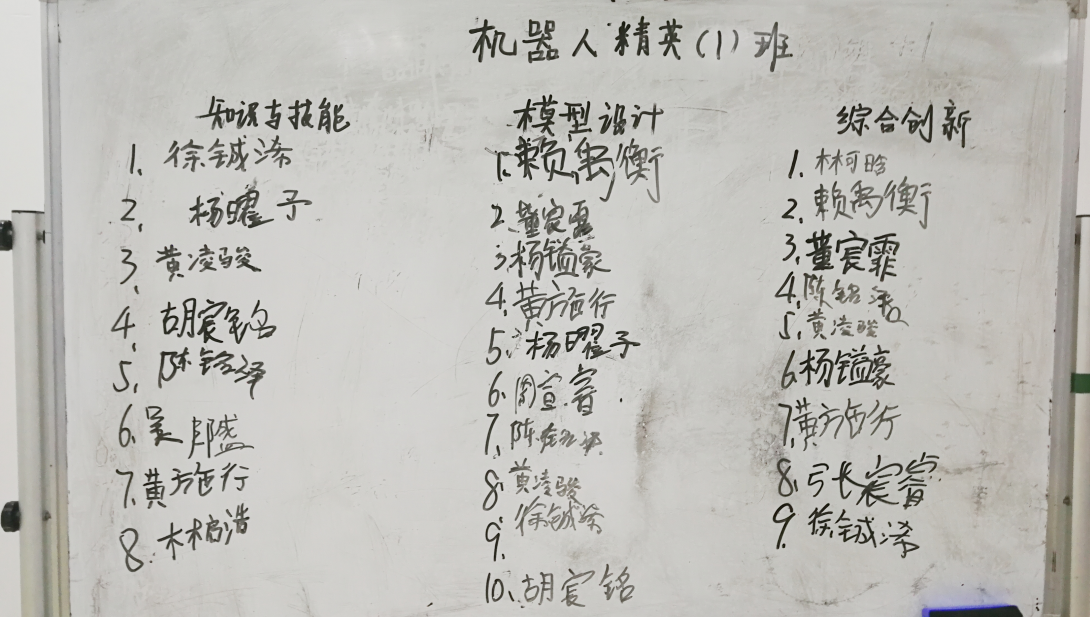 机器人精英(1)班
知识与技能
1. 徐铖浠
2. 杨曜予
3 黄凌骏
4. 胡宸铭
5. 陈铭泽
6. 吴邦盛
7. 黄施行
8. 林柏浩
模型设计
1. 赖禹衡
2. 董宸霏
3. 杨镒豪
4. 黄施行
5. 杨曜予
6. 周宣睿
7. 陈铭泽
8. 黄凌骏
9. 徐铖浠
10. 胡宸铭
综合创新
1. 林柯晗
2. 赖禹衡
3. 董宸霏
4. 陈铭泽
5. 黄凌骏
6. 杨镒豪
7. 黄施行
8. 张宸睿
9. 徐铖浠